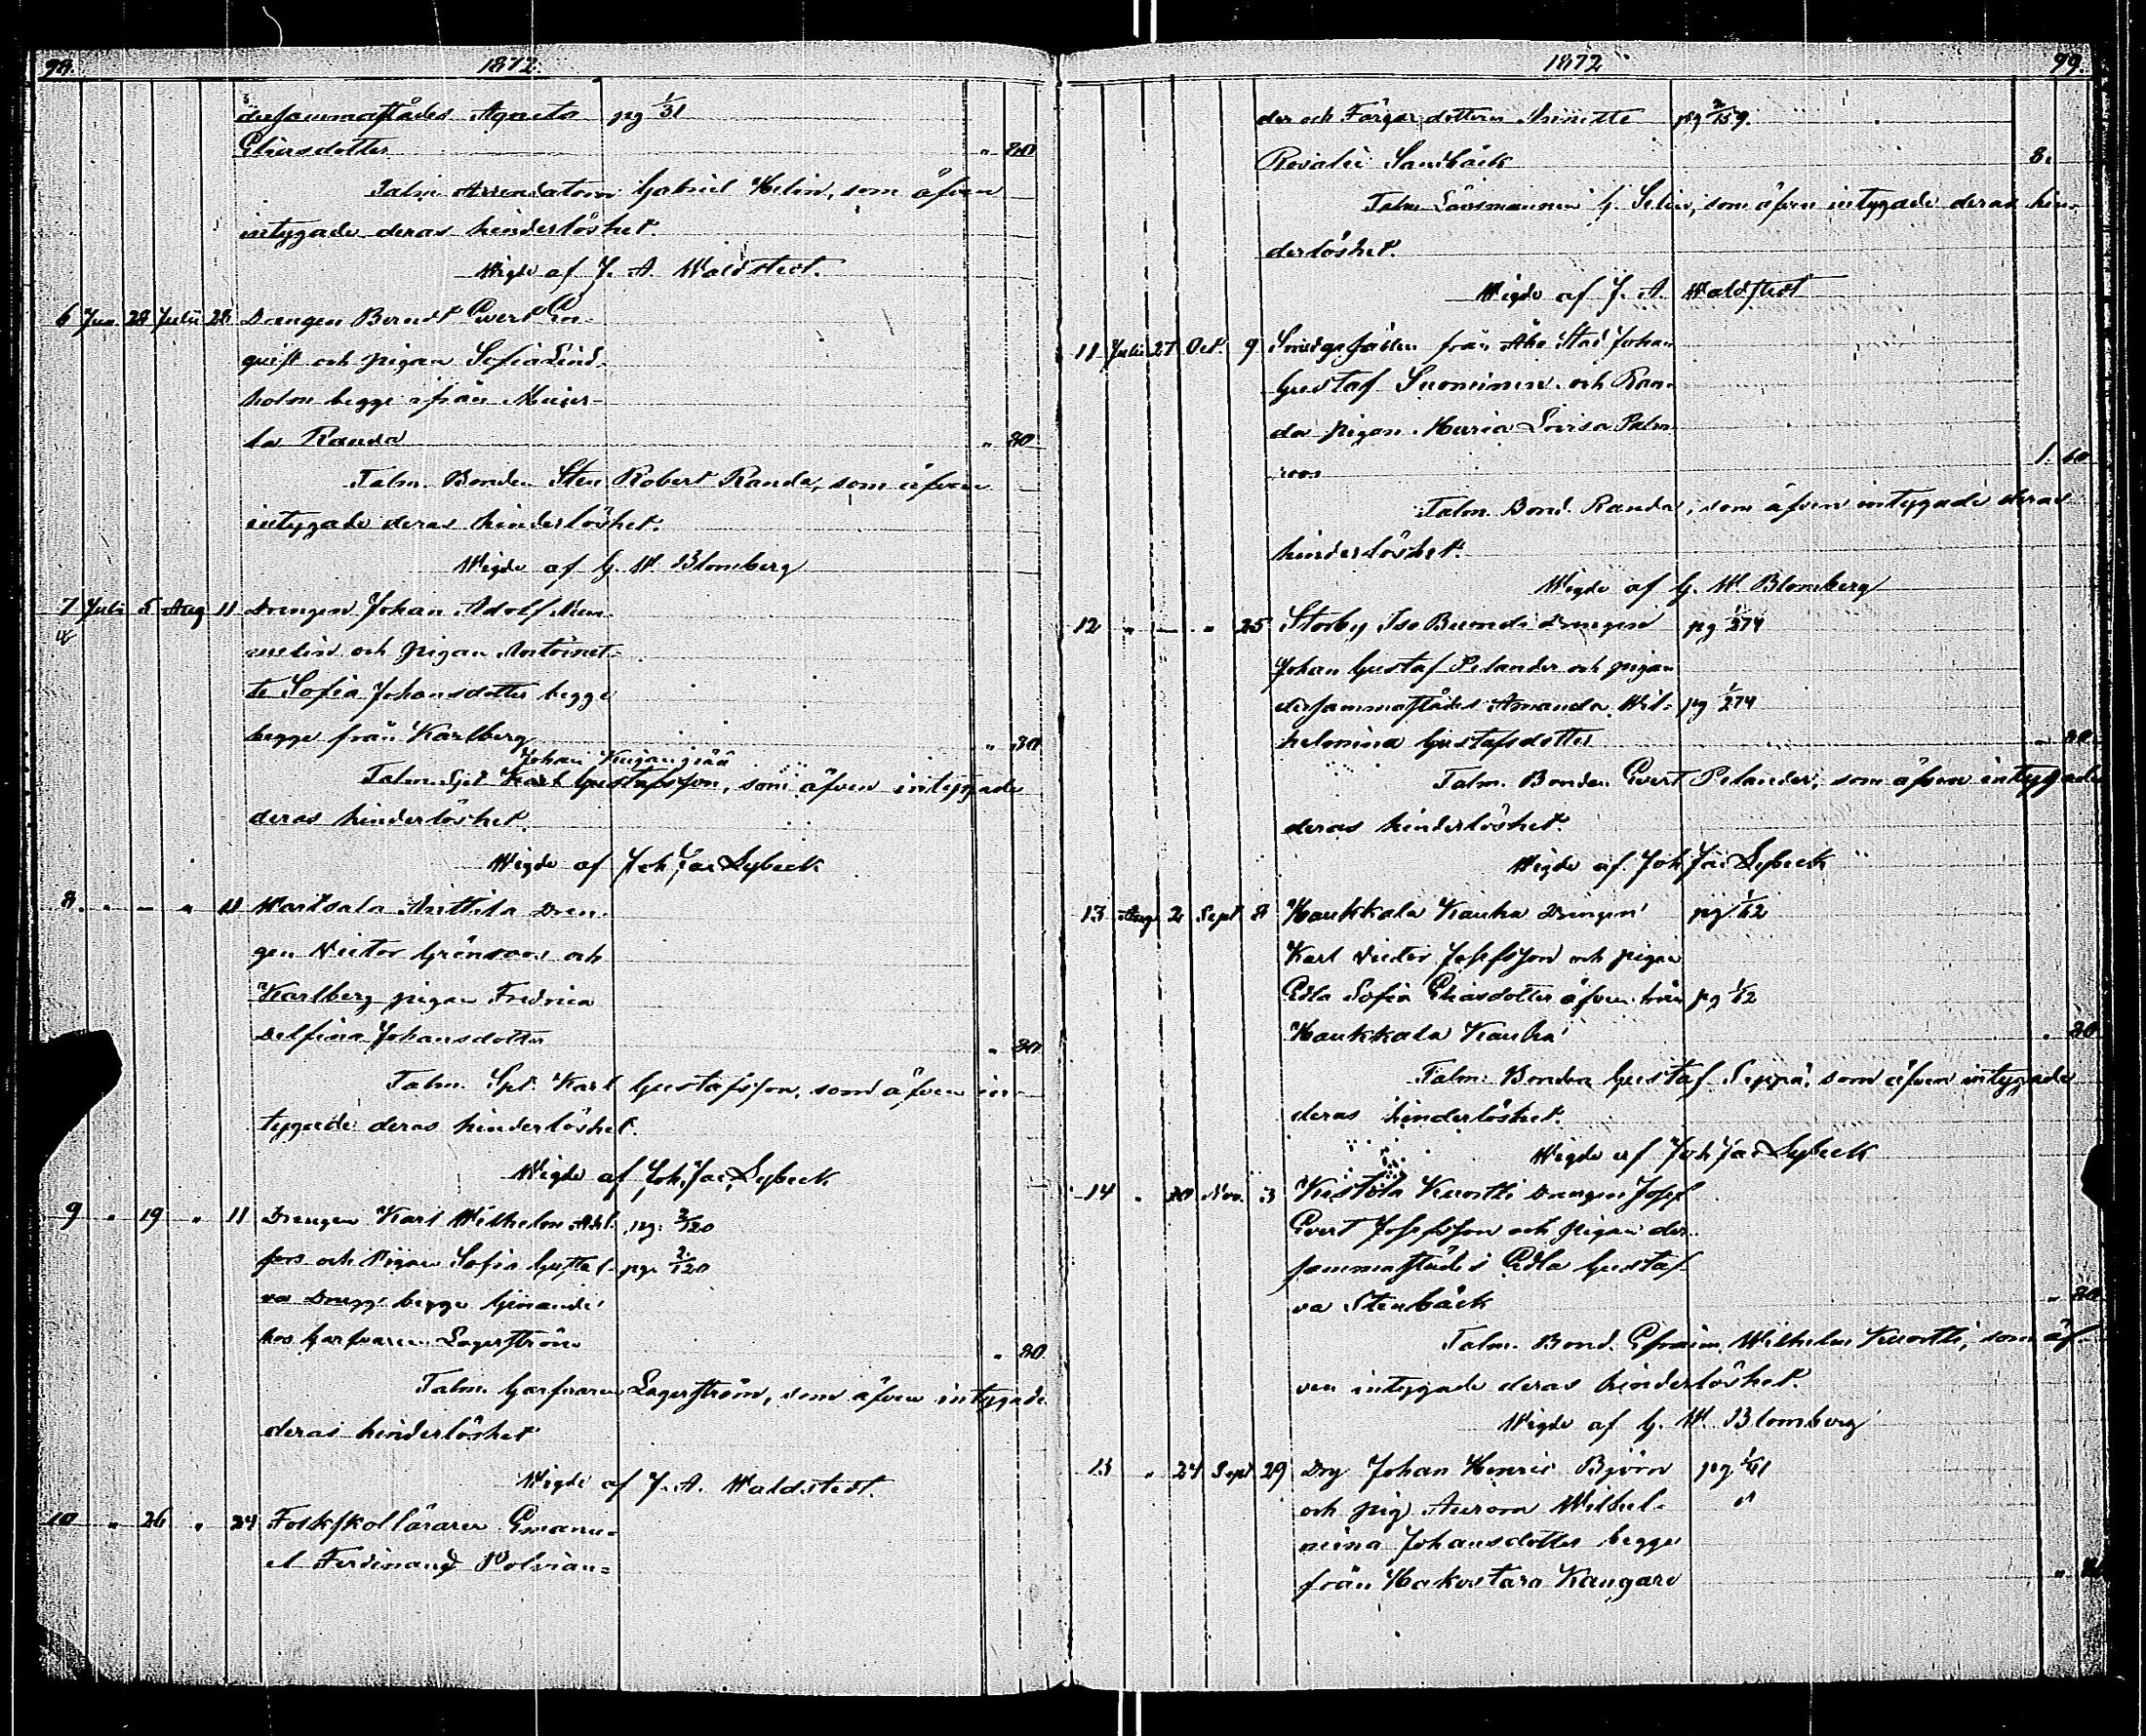 98. 1872.
dersammastädes Agneta pg 1/31
Eliasdotter " 80
Talm. Arrendatorn Gabriel Helin, som äfven
intygade deras hinderlöshet.
Wigde af J. A. Waldstedt.
6 Jun. 28 Julii 28 Drengen Berndt Evert En-
quist och pigan Sofia Lind-
holm begge ifrån Muur-
la Randa " 80
Talm. Bonden Sten Robert Randa, som äfven
intygade deras hinderlöshet.
Wigde af G. W. Blomberg
7 Juli 5 Aug 11 Drengen Johan Adolf Num-
melin och pigan Antoinet-
te Sofia Johansdotter begge
begge från Karlberg " 80
Johan
Talm. Karl Gustafsson, som äfven intygade
deras hinderlöshet.
Wigde af Joh. Jac. Lybeck
8 " — " 11 Wartsala Anttila Dren-
gen Victor Grönroos och
Karlberg pigan Fredrica
Delfina Johansdotter " 80
Talm. Spt. Karl Gustafsson, som äfven in-
tygade deras hinderlöshet.
Wigde af Joh. Jac. Lybeck
9 " 19 " 11 Drengen Karl Wilhelm Ahl- pg. 2/120
fors och Pigan Sofia Gustaf- pg. 2/120
va Dregg begge tjenande
hos Garfvaren Lagerström " 80
Talm. Garfvaren Lagerström, som äfven intygade
deras hinderlöshet
Wigde af J. A. Waldstedt.
10 " 26 " 24 Folkskolläraren Emanu-
el Ferdinand Polvian-
1872 99.
der och Färgaredottern Annette pg 2/159.
Rosalie Sandbäck 8.
Talm. Länsmannen G. Selin, som äfven intygade deras hin-
derlöshet.
Wigde af J. A. Waldstedt
11 Julii 27 Oct. 9 Smidgesällen från Åbo Stad Johan
Gustaf Suominen och Ran-
da pigan Maria Lovisa Palm-
roos 1. 60
Talm. Bond. Randa, som äfven intygade deras
hinderlöshet.
Wigde af G. W. Blomberg
12 " — " 25 Storby Iso Buonds drengen pg 1/274
Johan Gustaf Pelander och pigan
dersammastädes Amanda Wil- pg 1/274
helmina Gustafsdotter " 80.
Talm. Bonden Evert Pelander, som äfven intygade
deras hinderlöshet.
Wigde af Joh Jac Lybeck
13 Aug. 2 Sept. 8 Haukkala Kauha Drengen pg 1/62
Karl Victor Josefsson och pigan
Edla Sofia Eliasdotter äfven från pg 1/62
Haukkala Kauha " 80
Talm. Bonden Gustaf Seppä, som äfven intygade
deras hinderlöshet.
Wigde af Joh Jac Lybeck
14 " 20 Nov. 3 Kistola Kuortti Drengen Josef
Evert Josefsson och pigan der-
sammastädes Edla Gustaf-
va Stenbäck " 80
Talm. Bond. Efraim Wilhelm Kuortti, som äf-
ven intygade deras hinderlöshet.
Wigde af G. W. Blomberg
15 " 24 Sept 29 Drg Johan Henric Björn pg 1/41
och pig. Aurora Wilhel-
mina Johansdotter begge
från Hakostaro Kangare "